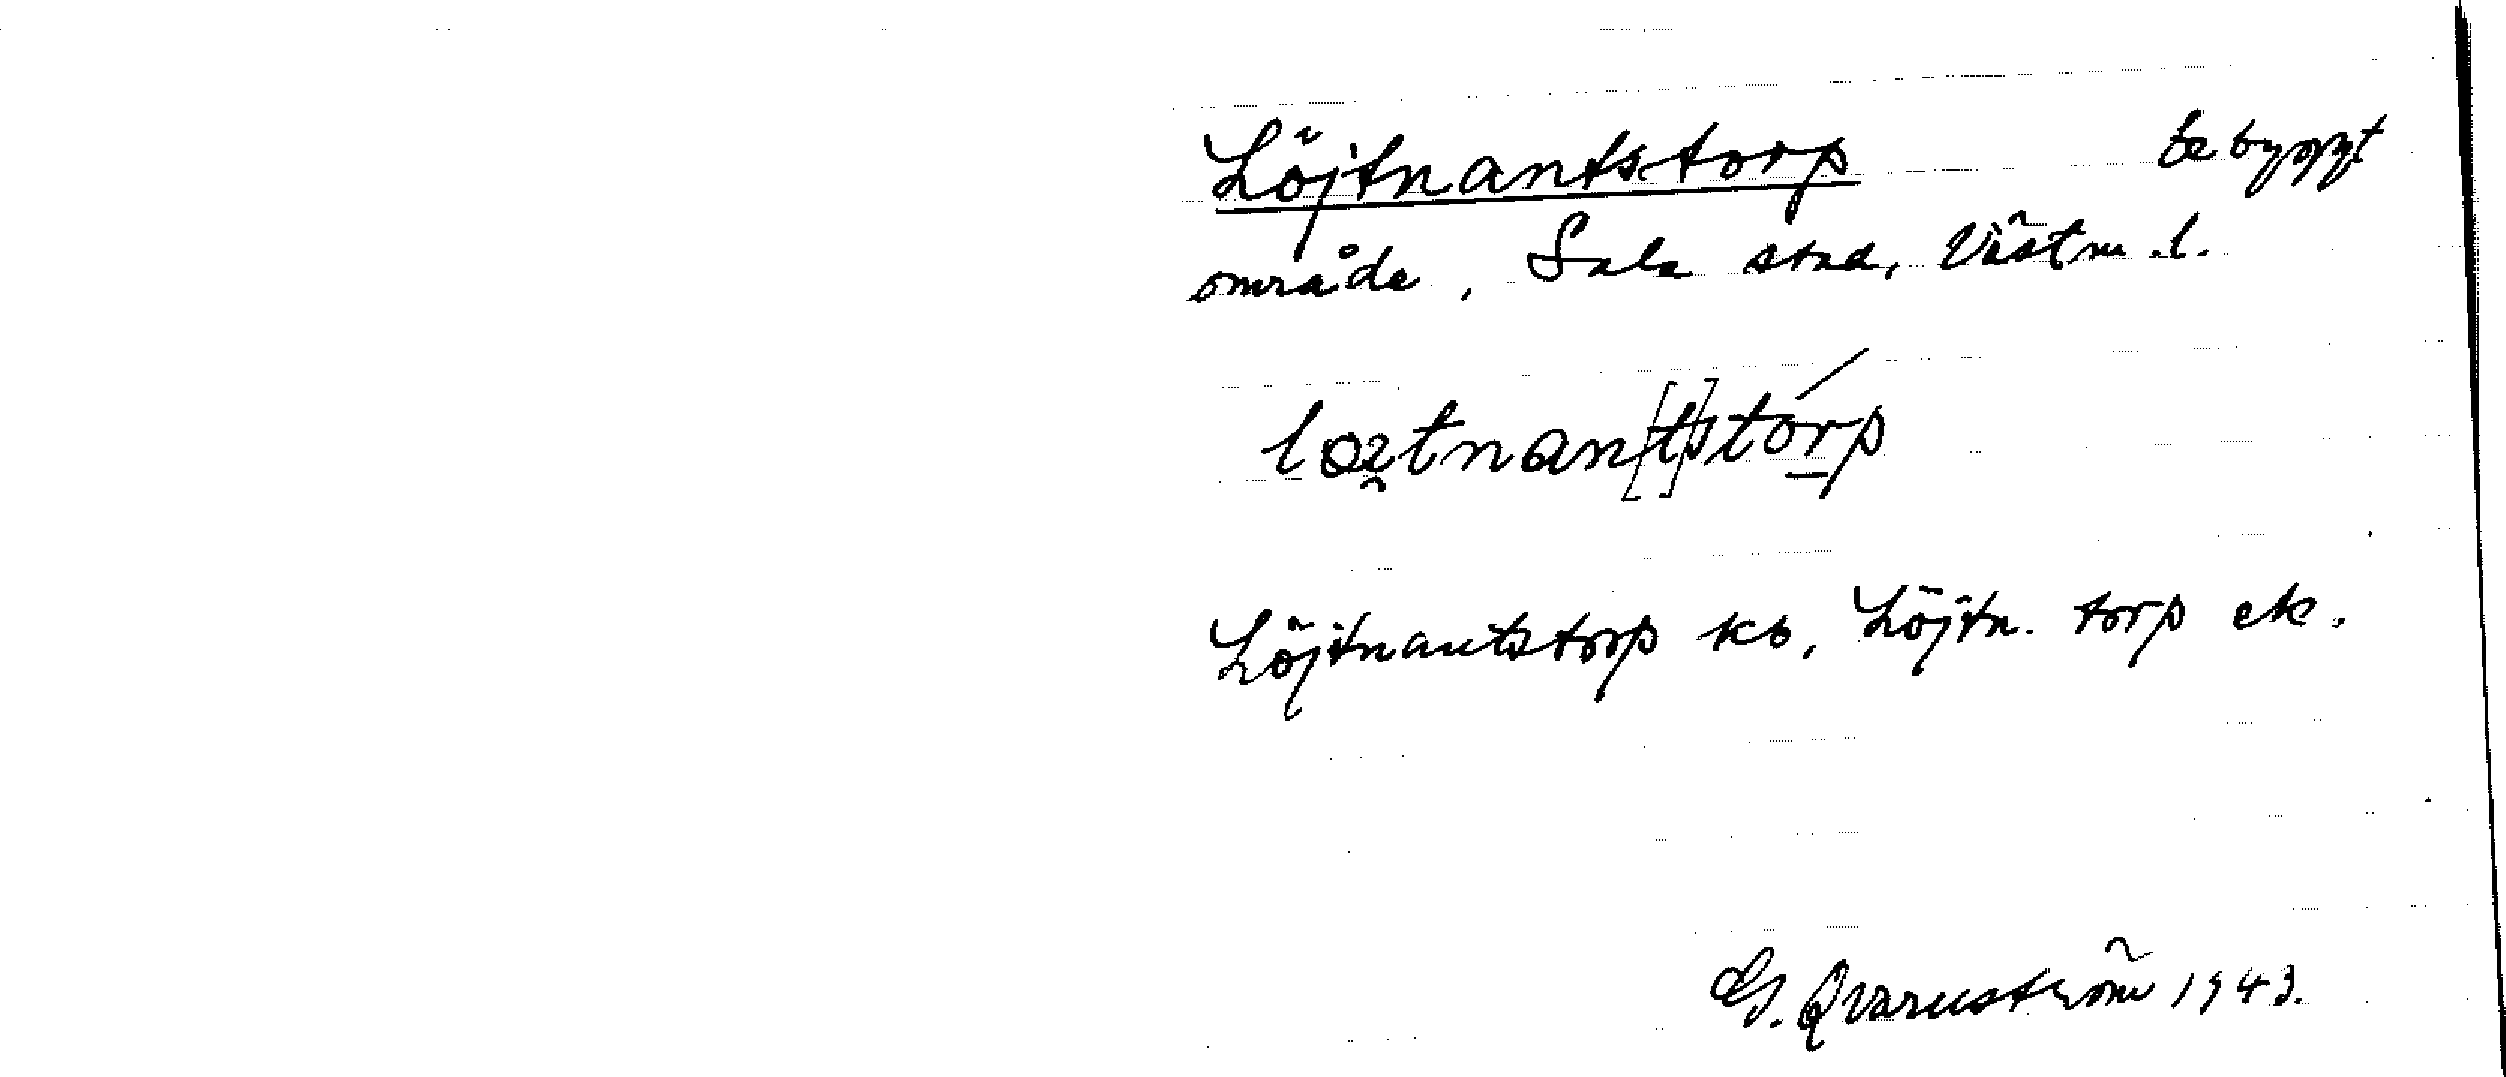 Löjtnantstorp bebyggt
område, Sala stad, Västm.l.
Löjtnantstorp kb, Löjtn. torp ek.
G. Qvarnström 1943.